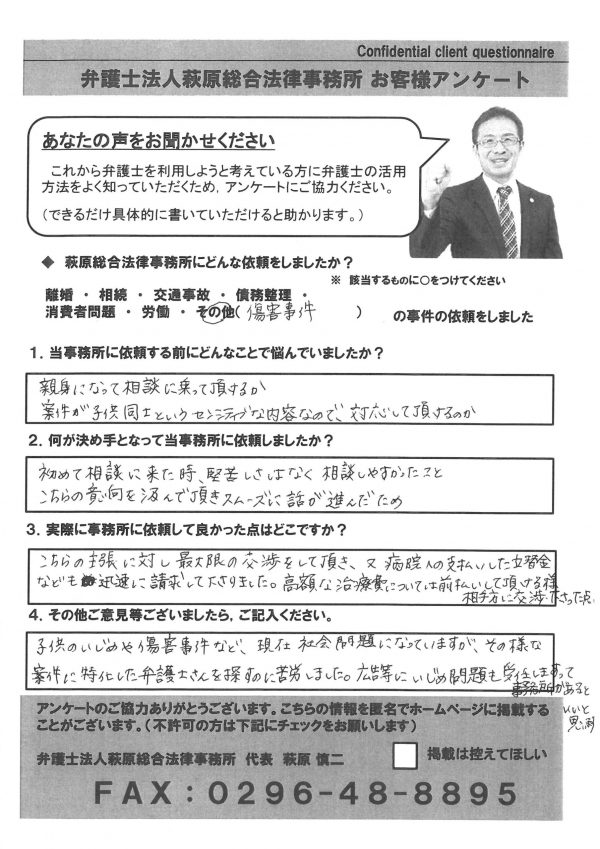 Confidential client questionnaire
弁護士法人萩原総合法律事務所 お客様アンケート
あなたの声をお聞かせください
これから弁護士を利用しようと考えている方に弁護士の活用
方法をよく知っていただくため，アンケートにご協力ください。
（できるだけ具体的に書いていただけると助かります。）
◆ 萩原総合法律事務所にどんな依頼をしましたか？
※ 該当するものに○をつけてください
離婚 ・ 相続 ・ 交通事故 ・ 債務整理 ・
消費者問題 ・ 労働 ・ その他（傷害事件 ）の事件の依頼をしました
1．当事務所に依頼する前にどんなことで悩んでいましたか？
親身になって相談に乗って頂けるか
案件が子供同士というセンシティブな内容なので、対応して頂けるのか
2．何が決め手となって当事務所に依頼しましたか？
初めて相談に来た時、堅苦しさはなく相談しやすかったこと
こちらの意向を汲んで頂きスムーズに話が進んだため
3．実際に事務所に依頼して良かった点はどこですか？
こちらの主張に対し最大限の交渉をして頂き、又病院への支払いした立替金
なども迅速に請求して下さりました。高額な治療費については前払いして頂ける様
相手方に交渉下さった点
4．その他ご意見等ございましたら，ご記入ください。
子供のいじめや傷害事件など、現在社会問題になっていますが、その様な
案件に特化した弁護士さんを探すのに苦労しました。広告等にいじめ問題も受任しますって
事務所があると
いいと
思います
アンケートのご協力ありがとうございます。こちらの情報を匿名でホームページに掲載する
ことがございます。（不許可の方は下記にチェックをお願いします）
弁護士法人萩原総合法律事務所 代表 萩原 慎二
掲載は控えてほしい
FAX：0296-48-8895